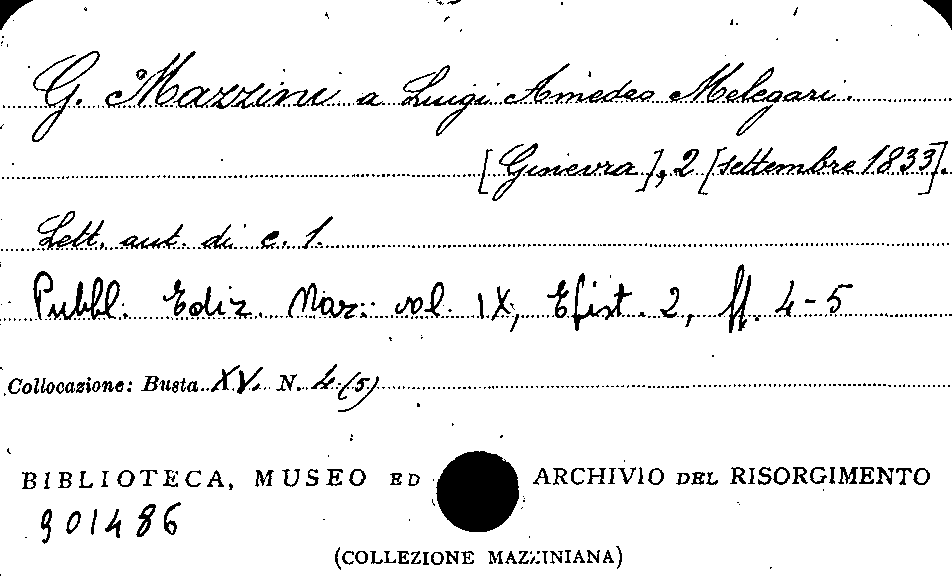 G. Mazzini a Luigi Amedeo Melegari.
[Ginevra], 2 [settembre 1833].
Lett. aut. di c. 1.
Pubbl. Ediz. Naz.: vol. IX, Epist. 2, pp. 4-5
Collocazione: Busta XV. N. 4(5)
BIBLIOTECA, MUSEO ED ARCHIVIO DEL RISORGIMENTO
901486
(COLLEZIONE MAZZINIANA)